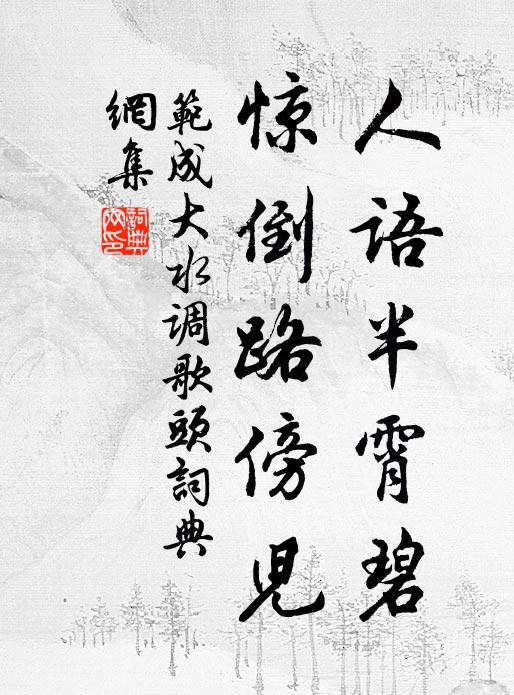 人语半霄碧
惊倒路傍儿
範成大水调歌頭詞典
網集
詞典網印